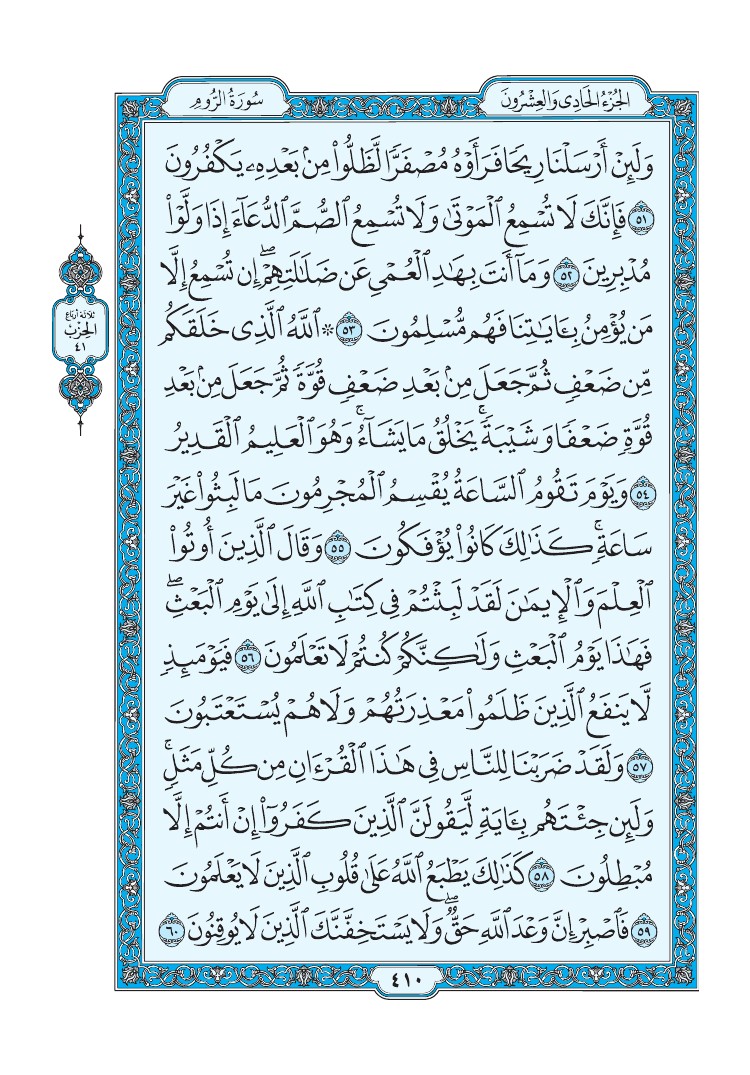 الجُزْءُ الحَادِي وَالعِشْرُونَ
سُورَةُ الرُّومِ
وَلَئِنۡ أَرۡسَلۡنَا رِيحٗا فَرَأَوۡهُ مُصۡفَرّٗا لَّظَلُّواْ مِنۢ بَعۡدِهِۦ يَكۡفُرُونَ
٥١ فَإِنَّكَ لَا تُسۡمِعُ ٱلۡمَوۡتَىٰ وَلَا تُسۡمِعُ ٱلصُّمَّ ٱلدُّعَآءَ إِذَا وَلَّوۡاْ
مُدۡبِرِينَ ٥٢ وَمَآ أَنتَ بِهَٰدِ ٱلۡعُمۡيِ عَن ضَلَٰلَتِهِمۡۖ إِن تُسۡمِعُ إِلَّا
مَن يُؤۡمِنُ بِـَٔايَٰتِنَا فَهُم مُّسۡلِمُونَ ٥٣ ۞ ٱللَّهُ ٱلَّذِي خَلَقَكُم
مِّن ضَعۡفٖ ثُمَّ جَعَلَ مِنۢ بَعۡدِ ضَعۡفٖ قُوَّةٗ ثُمَّ جَعَلَ مِنۢ بَعۡدِ
قُوَّةٖ ضَعۡفٗا وَشَيۡبَةٗۚ يَخۡلُقُ مَا يَشَآءُۚ وَهُوَ ٱلۡعَلِيمُ ٱلۡقَدِيرُ
٥٤ وَيَوۡمَ تَقُومُ ٱلسَّاعَةُ يُقۡسِمُ ٱلۡمُجۡرِمُونَ مَا لَبِثُواْ غَيۡرَ
سَاعَةٖۚ كَذَٰلِكَ كَانُواْ يُؤۡفَكُونَ ٥٥ وَقَالَ ٱلَّذِينَ أُوتُواْ
ٱلۡعِلۡمَ وَٱلۡإِيمَٰنَ لَقَدۡ لَبِثۡتُمۡ فِي كِتَٰبِ ٱللَّهِ إِلَىٰ يَوۡمِ ٱلۡبَعۡثِۖ
فَهَٰذَا يَوۡمُ ٱلۡبَعۡثِ وَلَٰكِنَّكُمۡ كُنتُمۡ لَا تَعۡلَمُونَ ٥٦ فَيَوۡمَئِذٖ
لَّا يَنفَعُ ٱلَّذِينَ ظَلَمُواْ مَعۡذِرَتُهُمۡ وَلَا هُمۡ يُسۡتَعۡتَبُونَ
٥٧ وَلَقَدۡ ضَرَبۡنَا لِلنَّاسِ فِي هَٰذَا ٱلۡقُرۡءَانِ مِن كُلِّ مَثَلٖۚ
وَلَئِن جِئۡتَهُم بِـَٔايَةٖ لَّيَقُولَنَّ ٱلَّذِينَ كَفَرُوٓاْ إِنۡ أَنتُمۡ إِلَّا
مُبۡطِلُونَ ٥٨ كَذَٰلِكَ يَطۡبَعُ ٱللَّهُ عَلَىٰ قُلُوبِ ٱلَّذِينَ لَا يَعۡلَمُونَ
٥٩ فَٱصۡبِرۡ إِنَّ وَعۡدَ ٱللَّهِ حَقّٞۖ وَلَا يَسۡتَخِفَّنَّكَ ٱلَّذِينَ لَا يُوقِنُونَ ٦٠
ثلاثة أرباع
الحِزْب
٤١
٤١٠